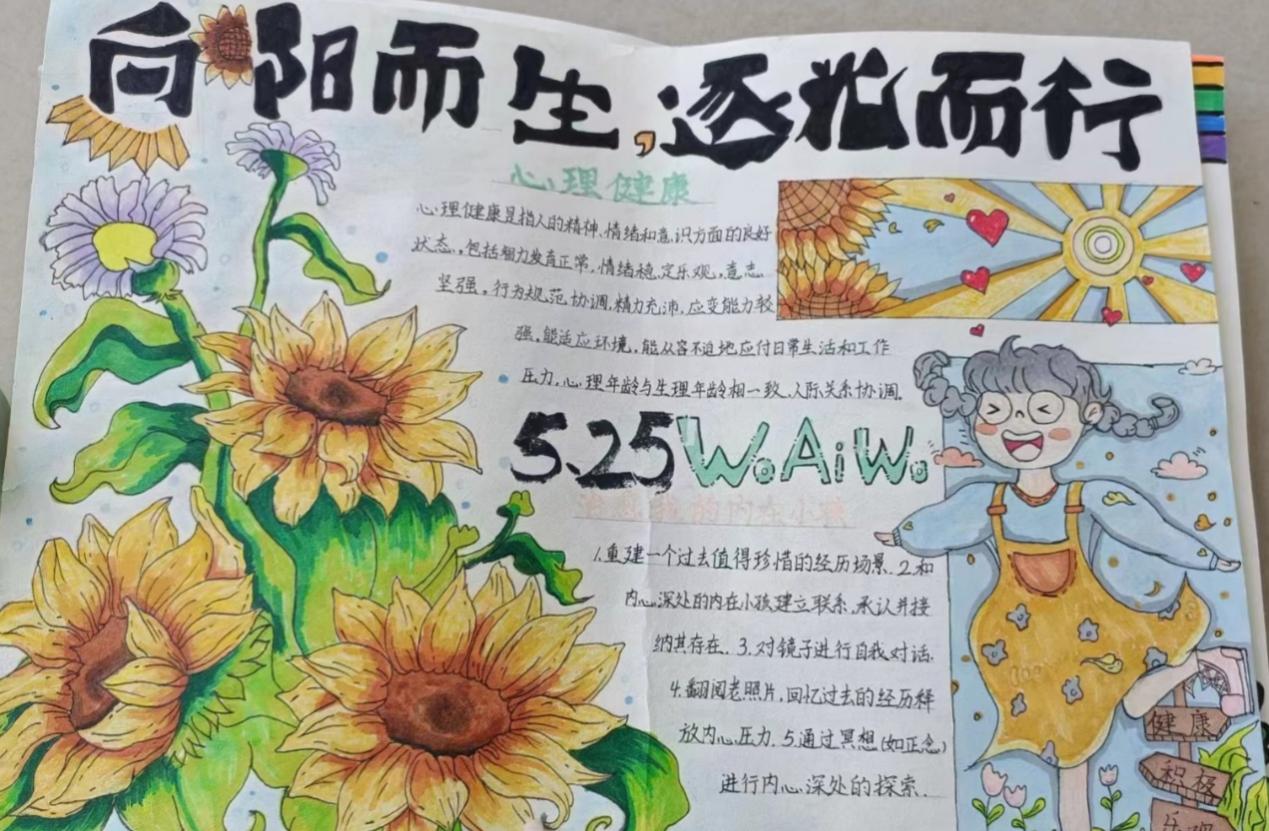 向阳而生,逐光而行
心理健康
心理健康是指人的精神、情绪和意识方面的良好
状态,包括智力发育正常,情绪稳定乐观,意志
坚强,行为规范协调,精力充沛,应变能力较
强,能适应环境,能从容不迫地应付日常生活和工作
压力,心理年龄与生理年龄相一致,人际关系协调。
5.25WoAiWo
治愈我的内在小孩
1.重建一个过去值得珍惜的经历场景.2.和
内心深处的内在小孩建立联系,承认并接
纳其存在.3.对镜子进行自我对话.
4.翻阅老照片,回忆过去的经历释
放内心压力.5.通过冥想(如正念)
进行内心深处的探索.
健康
积极
乐观